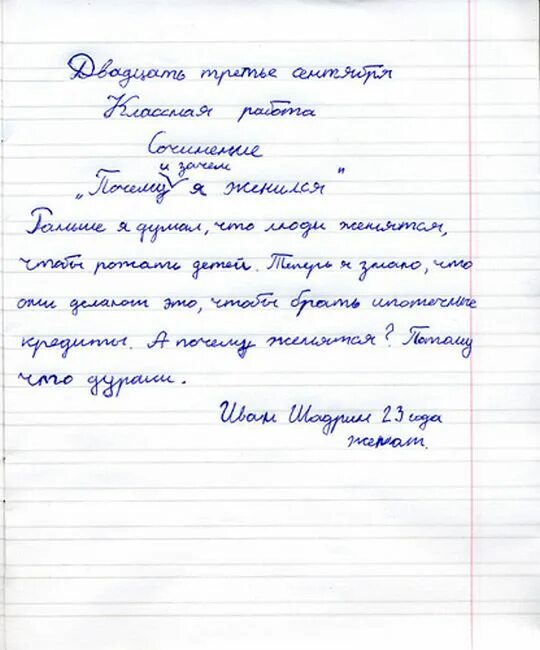 Двадцать третье сентября
Классная работа
Сочинение
и зачем
„Почему я женился"
Раньше я думал, что люди женятся,
чтобы рожать детей. Теперь я знаю, что
они делают это, чтобы брать ипотечные
кредиты. А почему женятся? Потому
что дураки.
Иван Шадрин 23 года
женат.